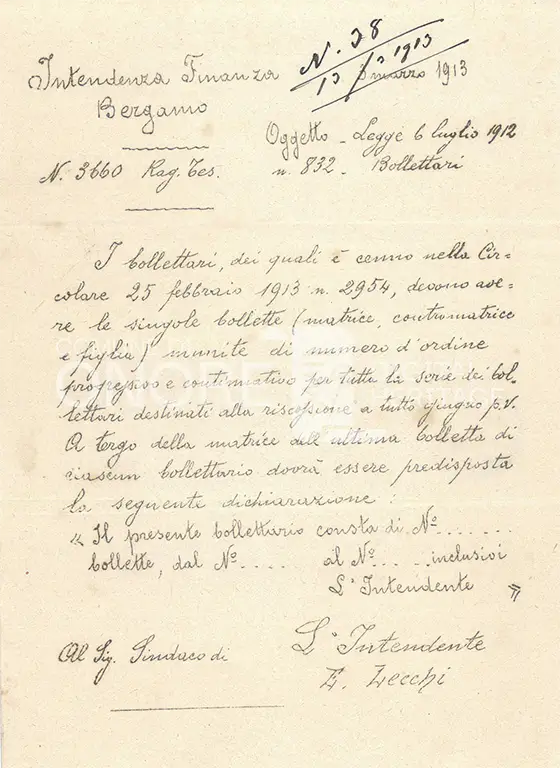 N. 38
13/3 1913
Intendenza Finanza
8 marzo 1913
Bergamo
Oggetto - Legge 6 luglio 1912
N. 3660 Rag. Tes.
n. 832 - Bollettari
I bollettari, dei quali è cenno nella Cir-
colare 25 febbraio 1913 n. 2954, devono ave-
re le singole bollette (matrice, contromatrice
e figlia) munite di numero d'ordine
progressivo e continuativo per tutta la serie dei bol-
lettari destinati alla riscossione a tutto giugno p.v.
A tergo della matrice dell'ultima bolletta di
ciascun bollettario dovrà essere predisposta
la seguente dichiarazione:
« Il presente bollettario consta di Nº ......
bollette, dal Nº ..... al Nº ..... inclusivi
L'Intendente »
Al Sig. Sindaco di
L'Intendente
E. Zecchi